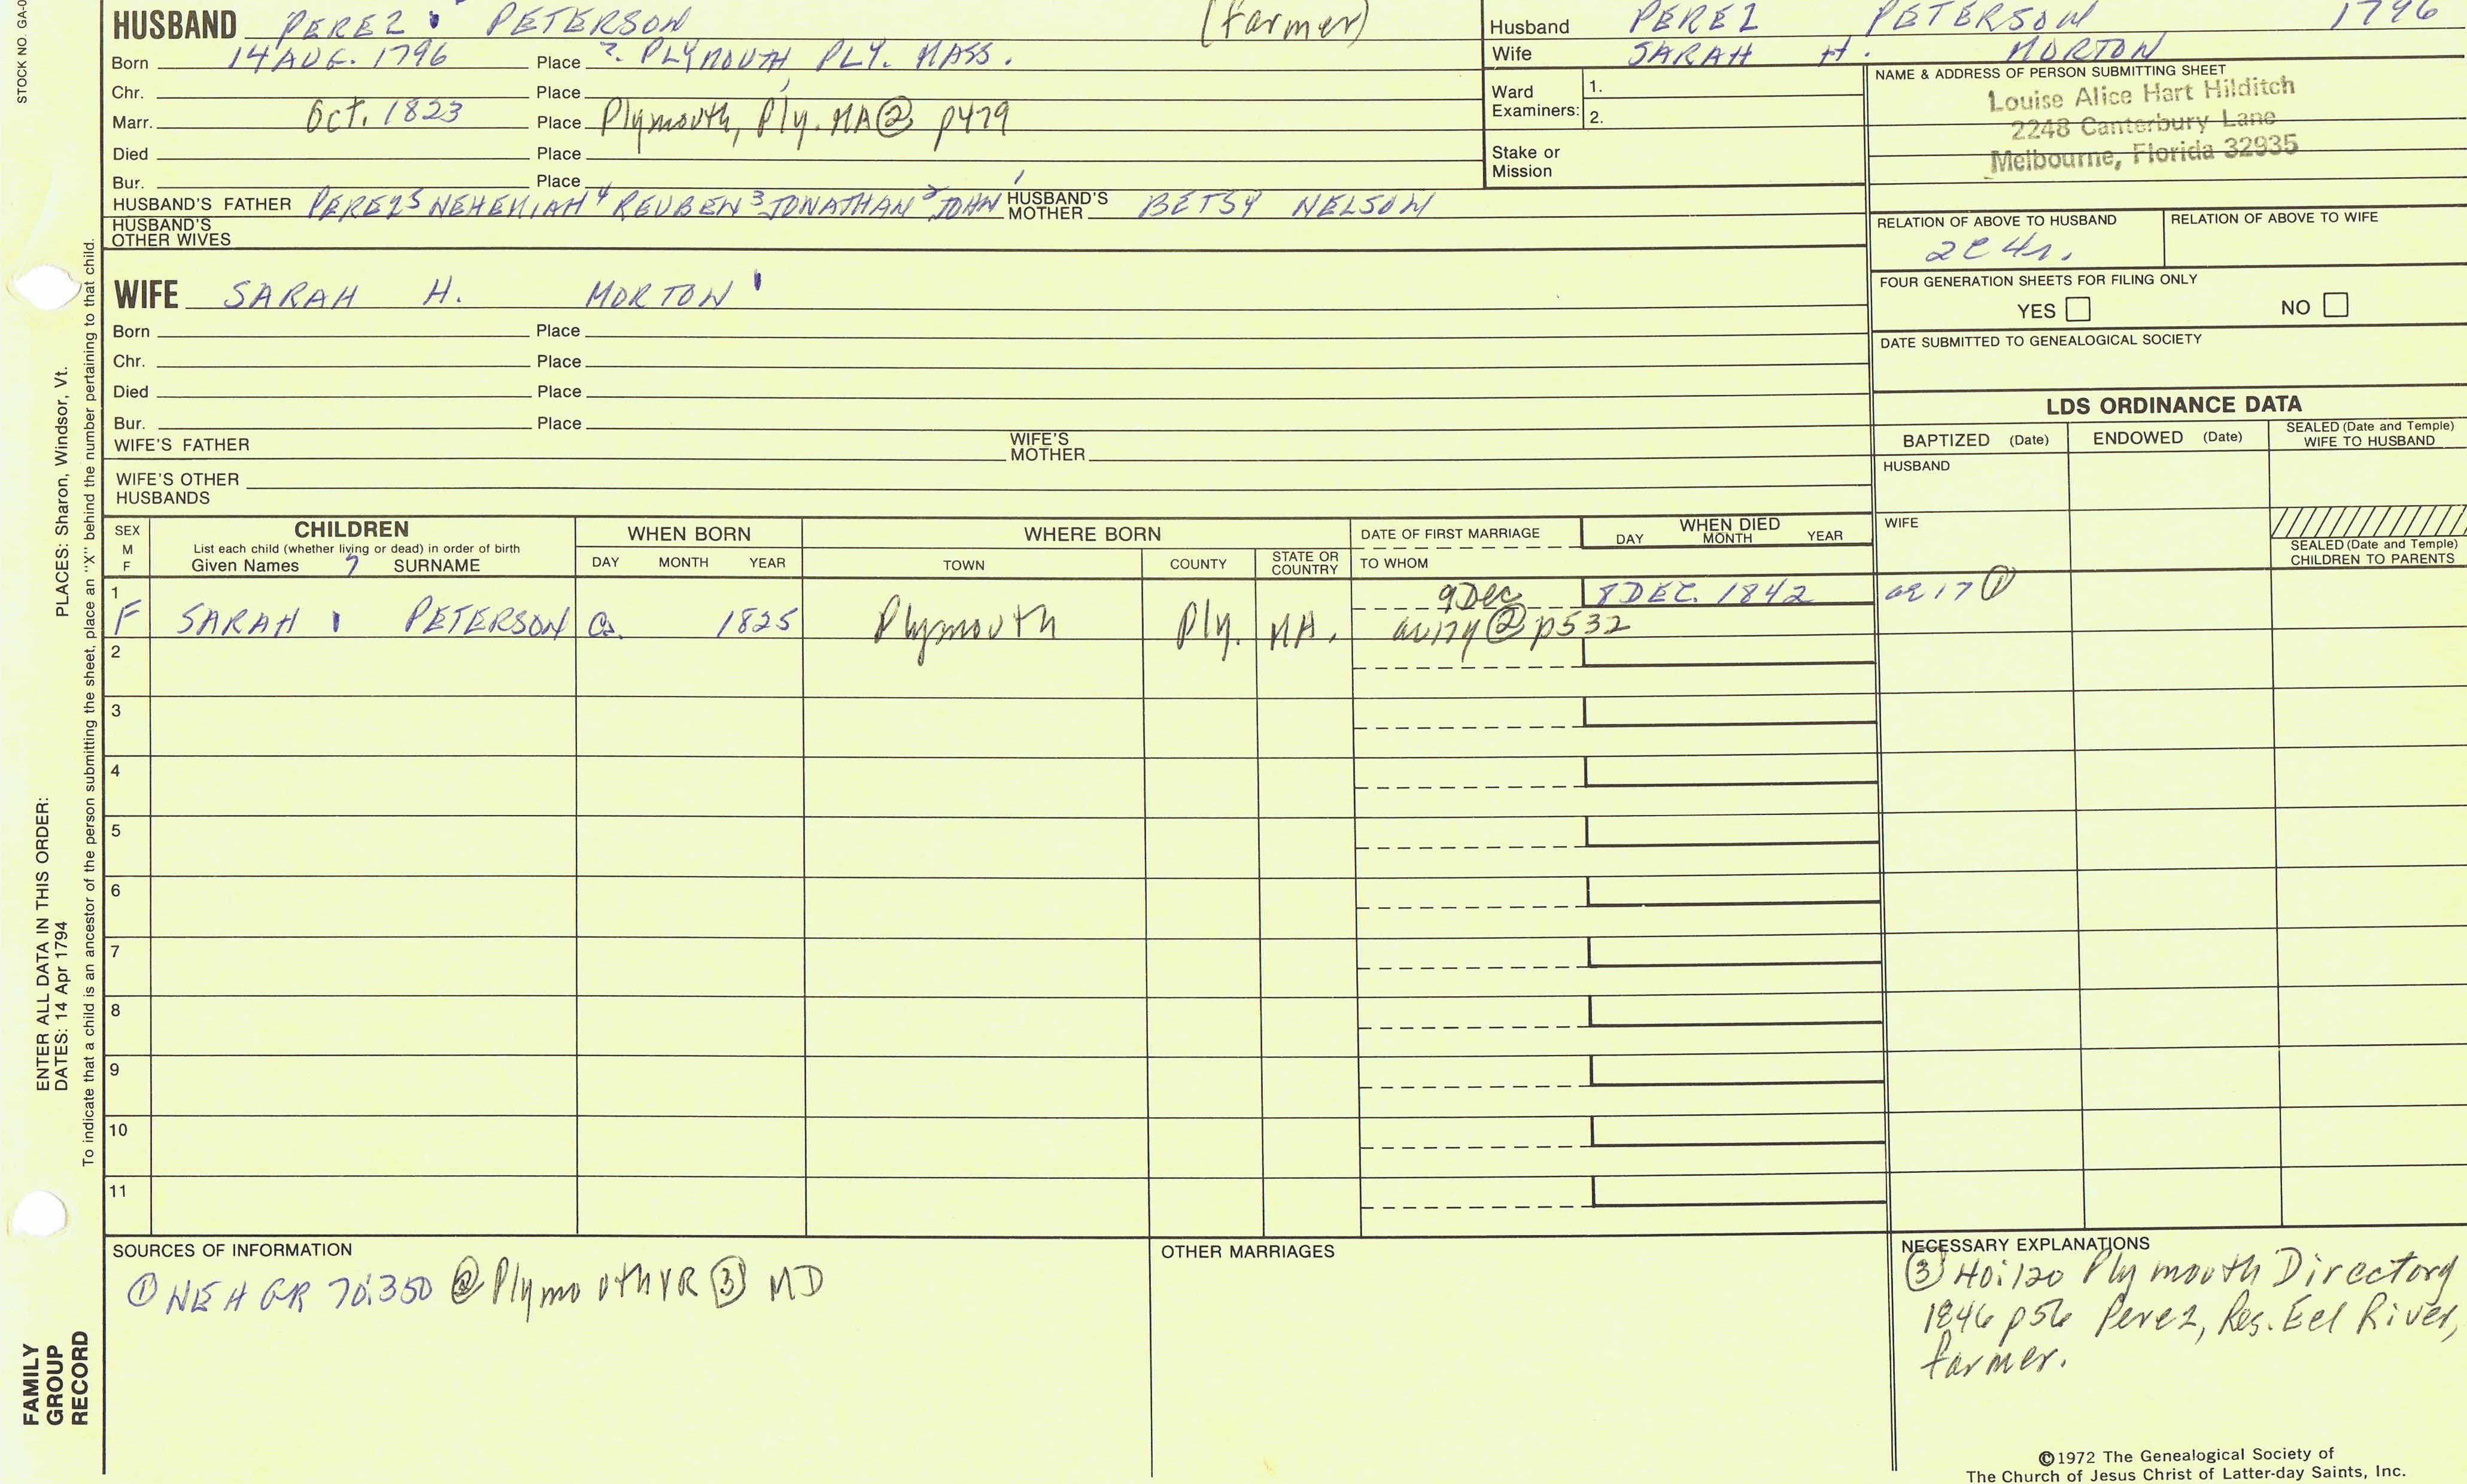 STOCK NO. GA-0
HUSBAND PEREZ PETERSON (Farmer)
Born 14 AUG. 1796 Place ? PLYMOUTH PLY. MASS.
Chr. Place
Marr. Oct. 1823 Place Plymouth, Ply. MA ② p479
Died Place
Bur. Place
HUSBAND'S FATHER PEREZ5 NEHEMIAH4 REUBEN3 JONATHAN2 JOHN1 HUSBAND'S MOTHER BETSY NELSON
HUSBAND'S OTHER WIVES
Husband PEREZ PETERSON 1796
Wife SARAH H. MORTON
Ward Examiners: 1.
2.
Stake or Mission
NAME & ADDRESS OF PERSON SUBMITTING SHEET
Louise Alice Hart Hilditch
2248 Canterbury Lane
Melbourne, Florida 32935
RELATION OF ABOVE TO HUSBAND RELATION OF ABOVE TO WIFE
2C4r.
FOUR GENERATION SHEETS FOR FILING ONLY
YES NO
DATE SUBMITTED TO GENEALOGICAL SOCIETY
WIFE SARAH H. MORTON
Born Place
Chr. Place
Died Place
Bur. Place
WIFE'S FATHER WIFE'S MOTHER
WIFE'S OTHER HUSBANDS
LDS ORDINANCE DATA
BAPTIZED (Date) ENDOWED (Date) SEALED (Date and Temple) WIFE TO HUSBAND
HUSBAND
WIFE
SEALED (Date and Temple) CHILDREN TO PARENTS
SEX M F CHILDREN WHEN BORN WHERE BORN DATE OF FIRST MARRIAGE WHEN DIED
List each child (whether living or dead) in order of birth
Given Names 7 SURNAME DAY MONTH YEAR TOWN COUNTY STATE OR COUNTRY TO WHOM DAY MONTH YEAR
1 9 Dec 8 DEC. 1842 ae 17 ①
F SARAH PETERSON Ca. 1825 Plymouth Ply. MA. ② p532
2
3
4
5
6
7
8
9
10
11
SOURCES OF INFORMATION
① NEHGR 70:350 ② Plymouth VR ③ MD
OTHER MARRIAGES
NECESSARY EXPLANATIONS
③ 40:120 Plymouth Directory
1846 p56 Perez, Res. Eel River,
farmer.
©1972 The Genealogical Society of
The Church of Jesus Christ of Latter-day Saints, Inc.
ENTER ALL DATA IN THIS ORDER:
DATES: 14 Apr 1794 PLACES: Sharon, Windsor, Vt.
To indicate that a child is an ancestor of the person submitting the sheet, place an "X" behind the number pertaining to that child.
FAMILY
GROUP
RECORD